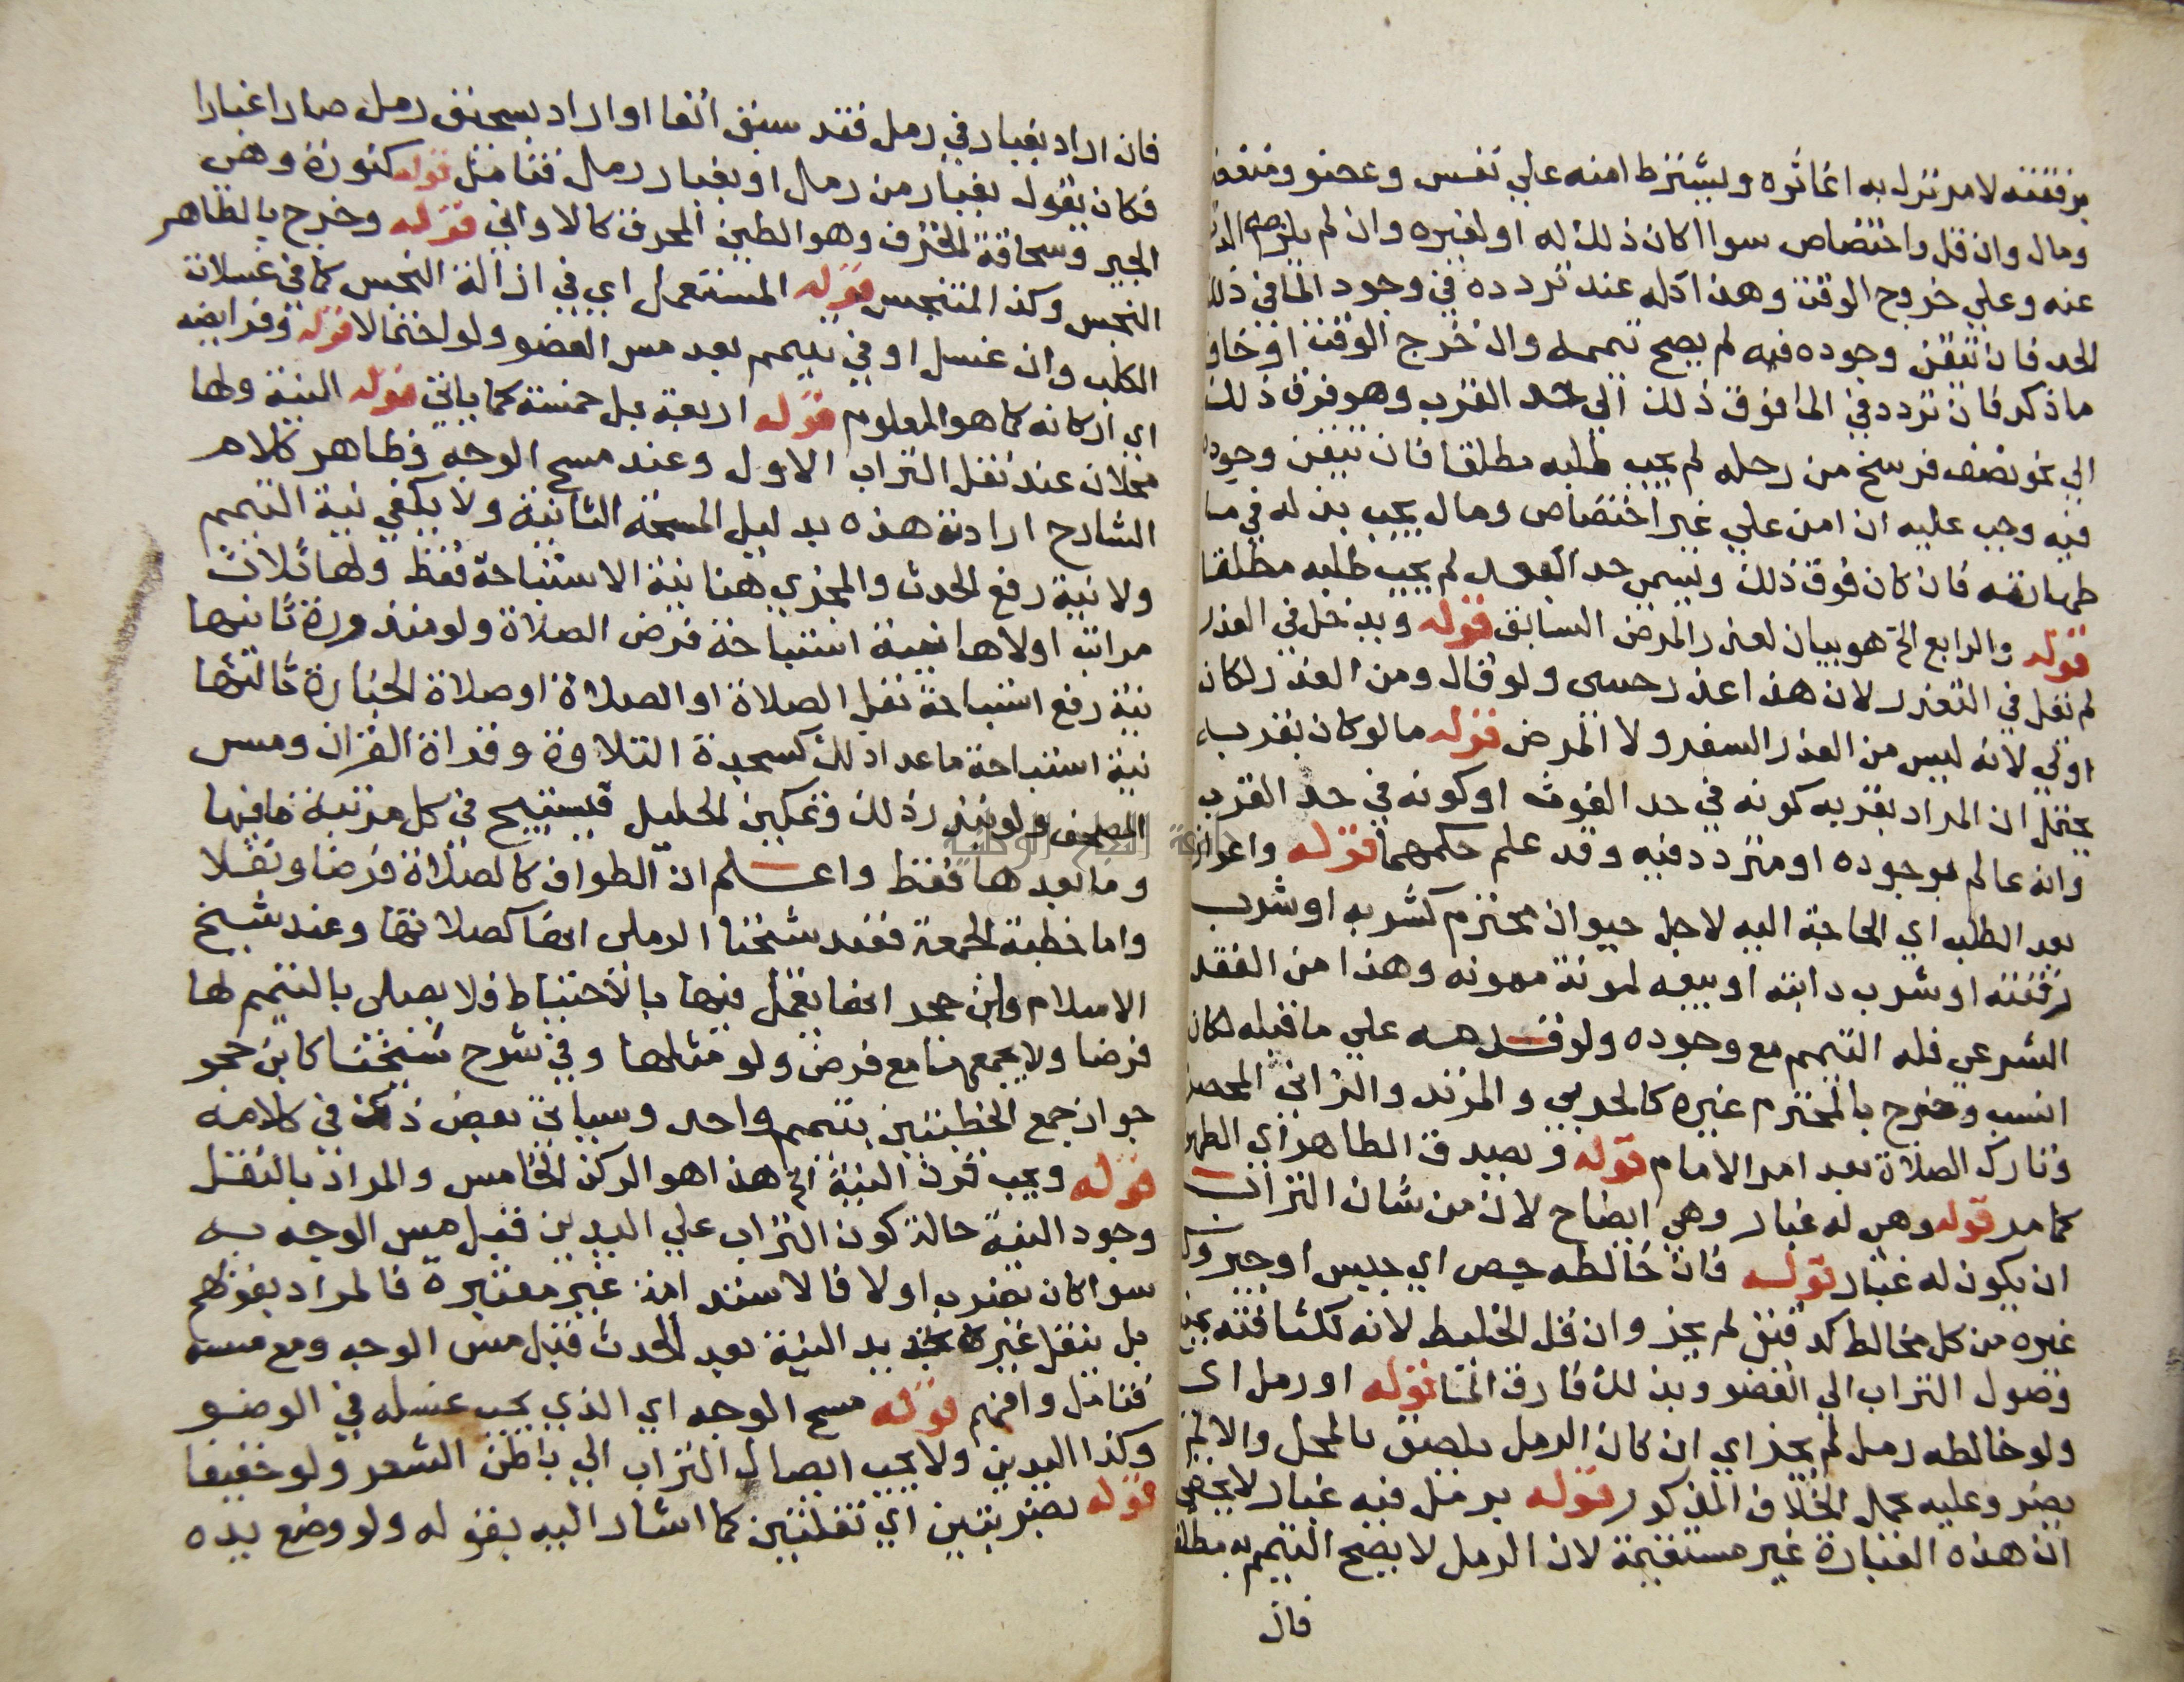 برفقته لامر نزل به اغاثوه ويشترط امنه علي نفس وعضو ومنفعة
ومال وان قل واختصاص سوا اكان ذلك له او لغيره وان لم يلزمه الذب
عنه وعلي خروج الوقت وهذا كله عند تردده في وجود الما في ذلك
الحد فان تيقن وجوده فيه لم يصح تيممه وان خرج الوقت او خاف
ما ذكر فان تردد في الما فوق ذلك الي حد القرب وهو فوق ذلك
الي نحو نصف فرسخ من رحله لم يجب طلبه مطلقا فان تيقن وجوده
فيه وجب عليه ان امن علي غير اختصاص ومال يجب بذله في ما
طهارته فان كان فوق ذلك ويسمى حد البعد لم يجب طلبه مطلقا
قوله والرابع الخ هو بيان لعذر المرض السابق قوله ويدخل في العذر
لم نقل في التعذر لان هذا اعذر حسي ولو قال ومن العذر لكان
اولي لانه ليس من العذر السفر ولا المرض قوله ما لو كان بقربه
يحتمل ان المراد بقربه كونه في حد الغوث او كونه في حد القرب
وانه عالم بوجوده او متردد فيه وقد علم حكمهما قوله واعوازه
بعد الطلب اي الحاجة اليه لاجل حيوان محترم كشربه او شرب
رفقته او شرب دابته او بيعه لمونة ممونه وهذا من الفقد
الشرعي فله التيمم مع وجوده ولو قدمه علي ما قبله لكان
انسب وخرج بالمحترم غيره كالحربي والمرتد والزاني المحصن
وتارك الصلاة بعد امر الامام قوله ويصدق الطاهر اي الطهور
كما مر قوله وهي له غبار وهي ايضاح لان من شان التراب
ان يكون له غبار قوله فان خالطه جص اي جبس او جير وكذا
غيره من كل مخالط كدقيق لم يجز وان قل الخليط لانه لكثافته يمنع
وصول التراب الي العضو وبذلك فارق الما قوله او رمل اي
ولو خالطه رمل لم يجز اي ان كان الرمل يلصق بالمحل والا لم
يضر وعليه يحمل الخلاف المذكور قوله برمل فيه غبار لا يخفي
ان هذه العبارة غير مستقيمة لان الرمل لا يصح التيمم به مطلقا
فان
فان اراد بغبار في رمل فقد سبق انفا او اراد بسحق رمل صار اغبارا
فكان يقول بغبار من رمال او بغبار رمال فتامل قوله كنورة وهي
الجير وسحاقة الخزف وهو الطين المحرق كالاواني قوله وخرج بالطاهر
النجس وكذا المتنجس قوله المستعمل اي في ازالة النجس كما في غسلات
الكلب وان غسل او في تيمم بعد مس العضو ولو احتمالا قوله وفرايضه
اي اركانه كما هو المعلوم قوله اربعة بل خمسة كما ياتي قوله النية ولها
محلان عند نقل التراب الاول وعند مسح الوجه وظاهر كلام
الشارح ارادة هذه بدليل المسحة الثانية ولا يكفي نية التيمم
ولا نية رفع الحدث والمجزي هنا نية الاستباحة فقط ولها ثلاث
مراتب اولاها نية استباحة فرض الصلاة ولو منذورة ثانيها
نية رفع استباحة نفل الصلاة او الصلاة او صلاة الجنازة ثالثها
نية استباحة ما عدا ذلك كسجدة التلاوة وقراة القران ومس
المصحف ولو بنذر ذلك وتمكين الحليل فيستبيح في كل مرتبة ما فيها
وما بعدها فقط واعلم ان الطواف كالصلاة فرضا ونفلا
واما خطبة الجمعة فعند شيخنا الرملي انها كصلاتها وعند شيخ
الاسلام وابن حجر انها يعمل فيها بالاحتياط فلا يصلي بالتيمم لها
فرضا ولا يجمعها مع فرض ولو مثلها وفي شرح شيخنا كابن حجر
جواز جمع الخطبتين بتيمم واحد وسياتي بعض ذلك في كلامه
قوله ويجب قرن النية الخ هذا هو الركن الخامس والمراد بالنقل
وجود النية حالة كون التراب علي اليدين قبل مس الوجه به
سوا كان بضرب اولا فالاستدامة غير معتبرة فالمراد بقولهم
بل ينقل غيره تجديد النية بعد الحدث قبل مس الوجه ومع مسه
فتامل وافهم قوله مسح الوجه اي الذي يجب غسله في الوضو
وكذا اليدين ولا يجب ايصال التراب الي باطن الشعر ولو خفيفا
قوله بضربتين اي نقلتين كما اشار اليه بقوله ولو وضع يده